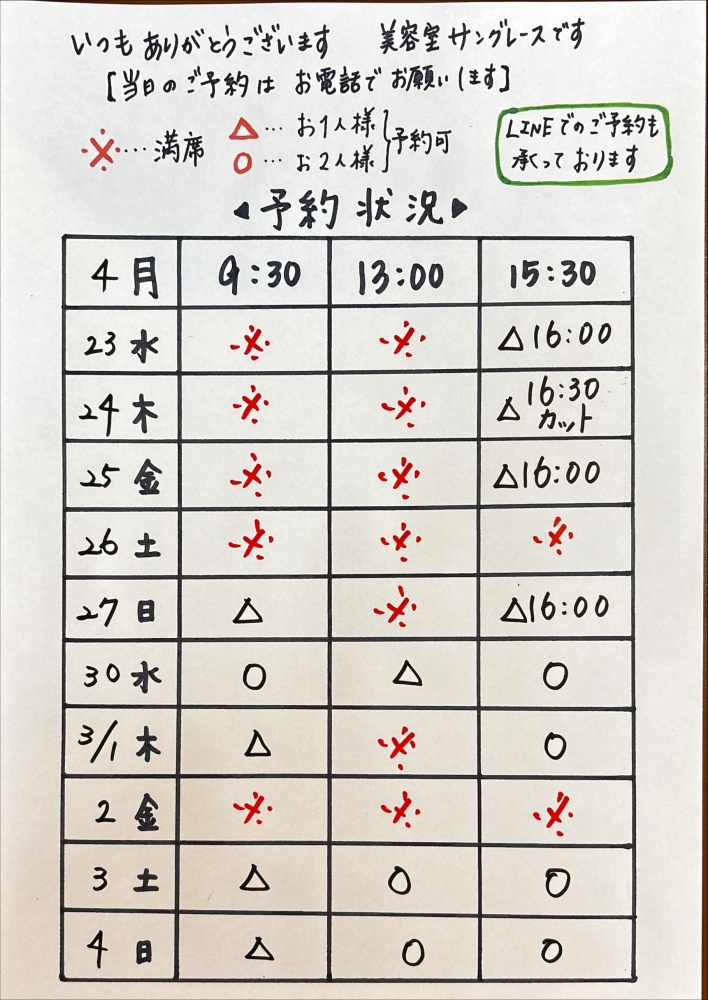 いつもありがとうございます 美容室サングレースです
[当日のご予約は お電話で お願いします]
※… 満席
△… お1人様
○… お2人様
予約可
LINEでのご予約も
承っております
◀予約状況▶
4月 9:30 13:00 15:30
23 水 ※ ※ △16:00
24 木 ※ ※ △16:30 カット
25 金 ※ ※ △16:00
26 土 ※ ※ ※
27 日 △ ※ △16:00
30 水 ○ △ ○
3/1 木 △ ※ ○
2 金 ※ ※ ※
3 土 △ ○ ○
4 日 △ ○ ○